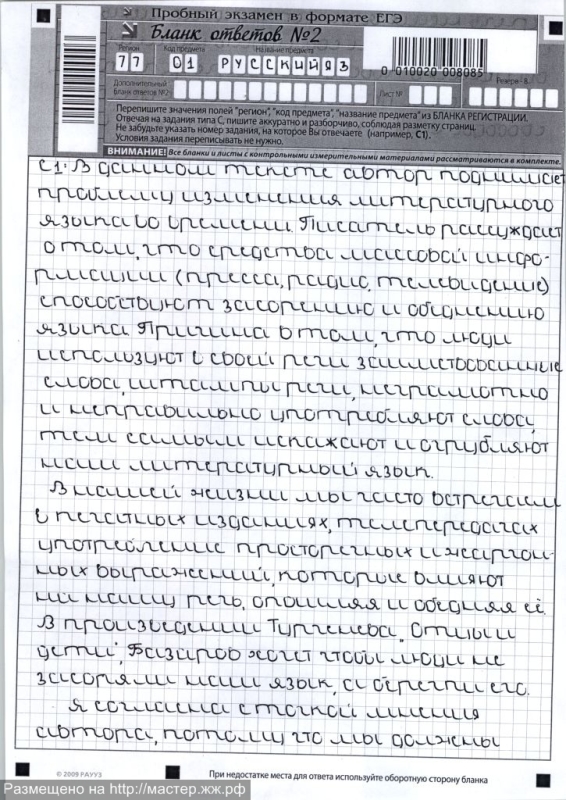 Пробный экзамен в формате ЕГЭ
Бланк ответов №2
Регион Код предмета Название предмета
77 01 РУССКИЙ ЯЗ
0 010020 008085
Дополнительный бланк ответов №2 Лист № Резерв - 8
Перепишите значения полей "регион", "код предмета", "название предмета" из БЛАНКА РЕГИСТРАЦИИ.
Отвечая на задания типа С, пишите аккуратно и разборчиво, соблюдая разметку страниц.
Не забудьте указать номер задания, на которое Вы отвечаете (например, С1).
Условия задания переписывать не нужно.
ВНИМАНИЕ! Все бланки и листы с контрольными измерительными материалами рассматриваются в комплекте.
С1: В данном тексте автор поднимает
проблему изменения литературного
языка во времени. Писатель рассуждает
о том, что средства массовой инфо-
рмации (пресса, радио, телевидение)
способствуют засорению и обеднению
языка. Причина в том, что люди
используют в своей речи заимствованные
слова, штампы речи, неграмотно
и неправильно употребляют слова,
тем самым искажают и огрубляют
наш литературный язык.
В нашей жизни мы часто встречаем
в печатных изданиях, телепередачах
употребление просторечных и жаргон-
ных выражений, которые влияют
на нашу речь, опошляя и обедняя её.
В произведении Тургенева „Отцы и
дети", Базаров хочет чтобы люди не
засоряли наш язык, а берегли его.
Я согласна с точкой мнения
автора, потому что мы должны
© 2009 РАУУЗ
При недостатке места для ответа используйте оборотную сторону бланка
Размещено на http://мастер.жж.рф